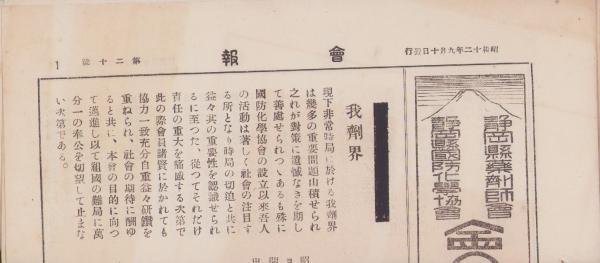 昭和十二年九月十日發行
會報
第二十號
1
靜岡縣藥劑師會
靜岡縣國防化學協會
會
我劑界
現下非常時局に於ける我劑界
は幾多の重要問題山積せられ
之れが對策に遺憾なきを期し
て善處せられつゝあるも殊に
國防化學協會の設立以來吾人
の活動は著しく社會の注目す
る所となり時局の切迫と共に
益々其の重要性を認識せられ
るに至つた、從つてそれだけ
責任の重大を痛感する次第で
此の際會員諸賢に於かれても
協力一致充分自重益々研鑽を
重ねられ、社會の期待に酬ゆ
ると共に、本會の目的に向つ
て邁進し以て祖國の難局に萬
分一の奉公を切望して止まな
い次第である。